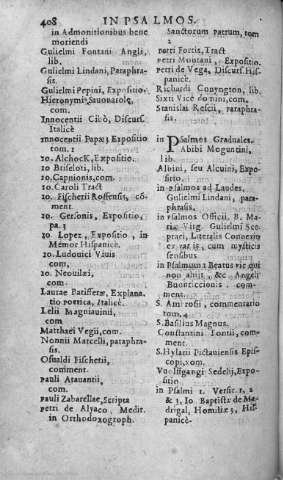 408 IN PSALMOS.
in Admonitionibus bene
moriendi
Gulielmi Fontani Angli,
lib.
Gulielmi Lindani, Paraphra-
sis.
Gulielmi Pepini, Expositio.
Hieronymi Sauonarolę,
com.
Innocentii Cibò, Discurs.
Italicè
Innocentii Papæ 3 Expositio
tom. 2
Io. Alchock, Expositio.
Io Briseloti, lib.
Io. Capnionis, com.
Io. Caroli Tract
Io. Fischerii Roffensis, cō-
ment.
Io. Gersonis, Expositio,
pa. 3
Io. Lopez, Expositio, in
Memor Hispanicè.
Io. Ludouici Viuis
com.
Io. Neouilæi,
com.
Lauræ Batiferræ, Explana-
tio poetica, Italicè.
Lelii Magniauini,
com.
Matthæi Vegii, com.
Nonnii Marcelli, paraphra-
sis.
Osualdi Fischerii,
comment.
Pauli Attauantii,
com.
Pauli Zabarellæ, Scripta
Petri de Alyaco, Medit.
in Orthodoxograph.
Sanctorum patrum, tom.
2
Petri Fortis, Tract
Petri Montani, Expositio.
Petri de Vega, Discurs. His-
panicè.
Richardi Conyngton, lib.
Sixti Vicedomini, com.
Stanislai Rescii, paraphra-
sis.
in Psalmos Graduales.
Abibi Moguntini,
lib.
Albini, seu Alcuini, Expo-
sitio.
in Psalmos ad Laudes.
Gulielmi Lindani, para-
phrasis.
in Psalmos Officii, B. Ma-
riæ Virg. Gulielmi Sce-
praci, Literalis Connexio
cum mysticis
sensibus
in Psalmum 1 Beatus vir qui
non abiit, &c Angeli
Buonriccionis com-
ment.
S. Ambrosii, commentario
tom. 4
S. Basilius Magnus.
Constantini Fontii, com-
ment.
S. Hylarii Pictauiensis Epis-
copi, com.
Vuolfgangi Sedelij, Expo-
sitio
in Psalmi 1. Versic 1, 2
& 3, Io Baptistæ de Ma-
drigal, Homiliæ 3, His-
panicè.